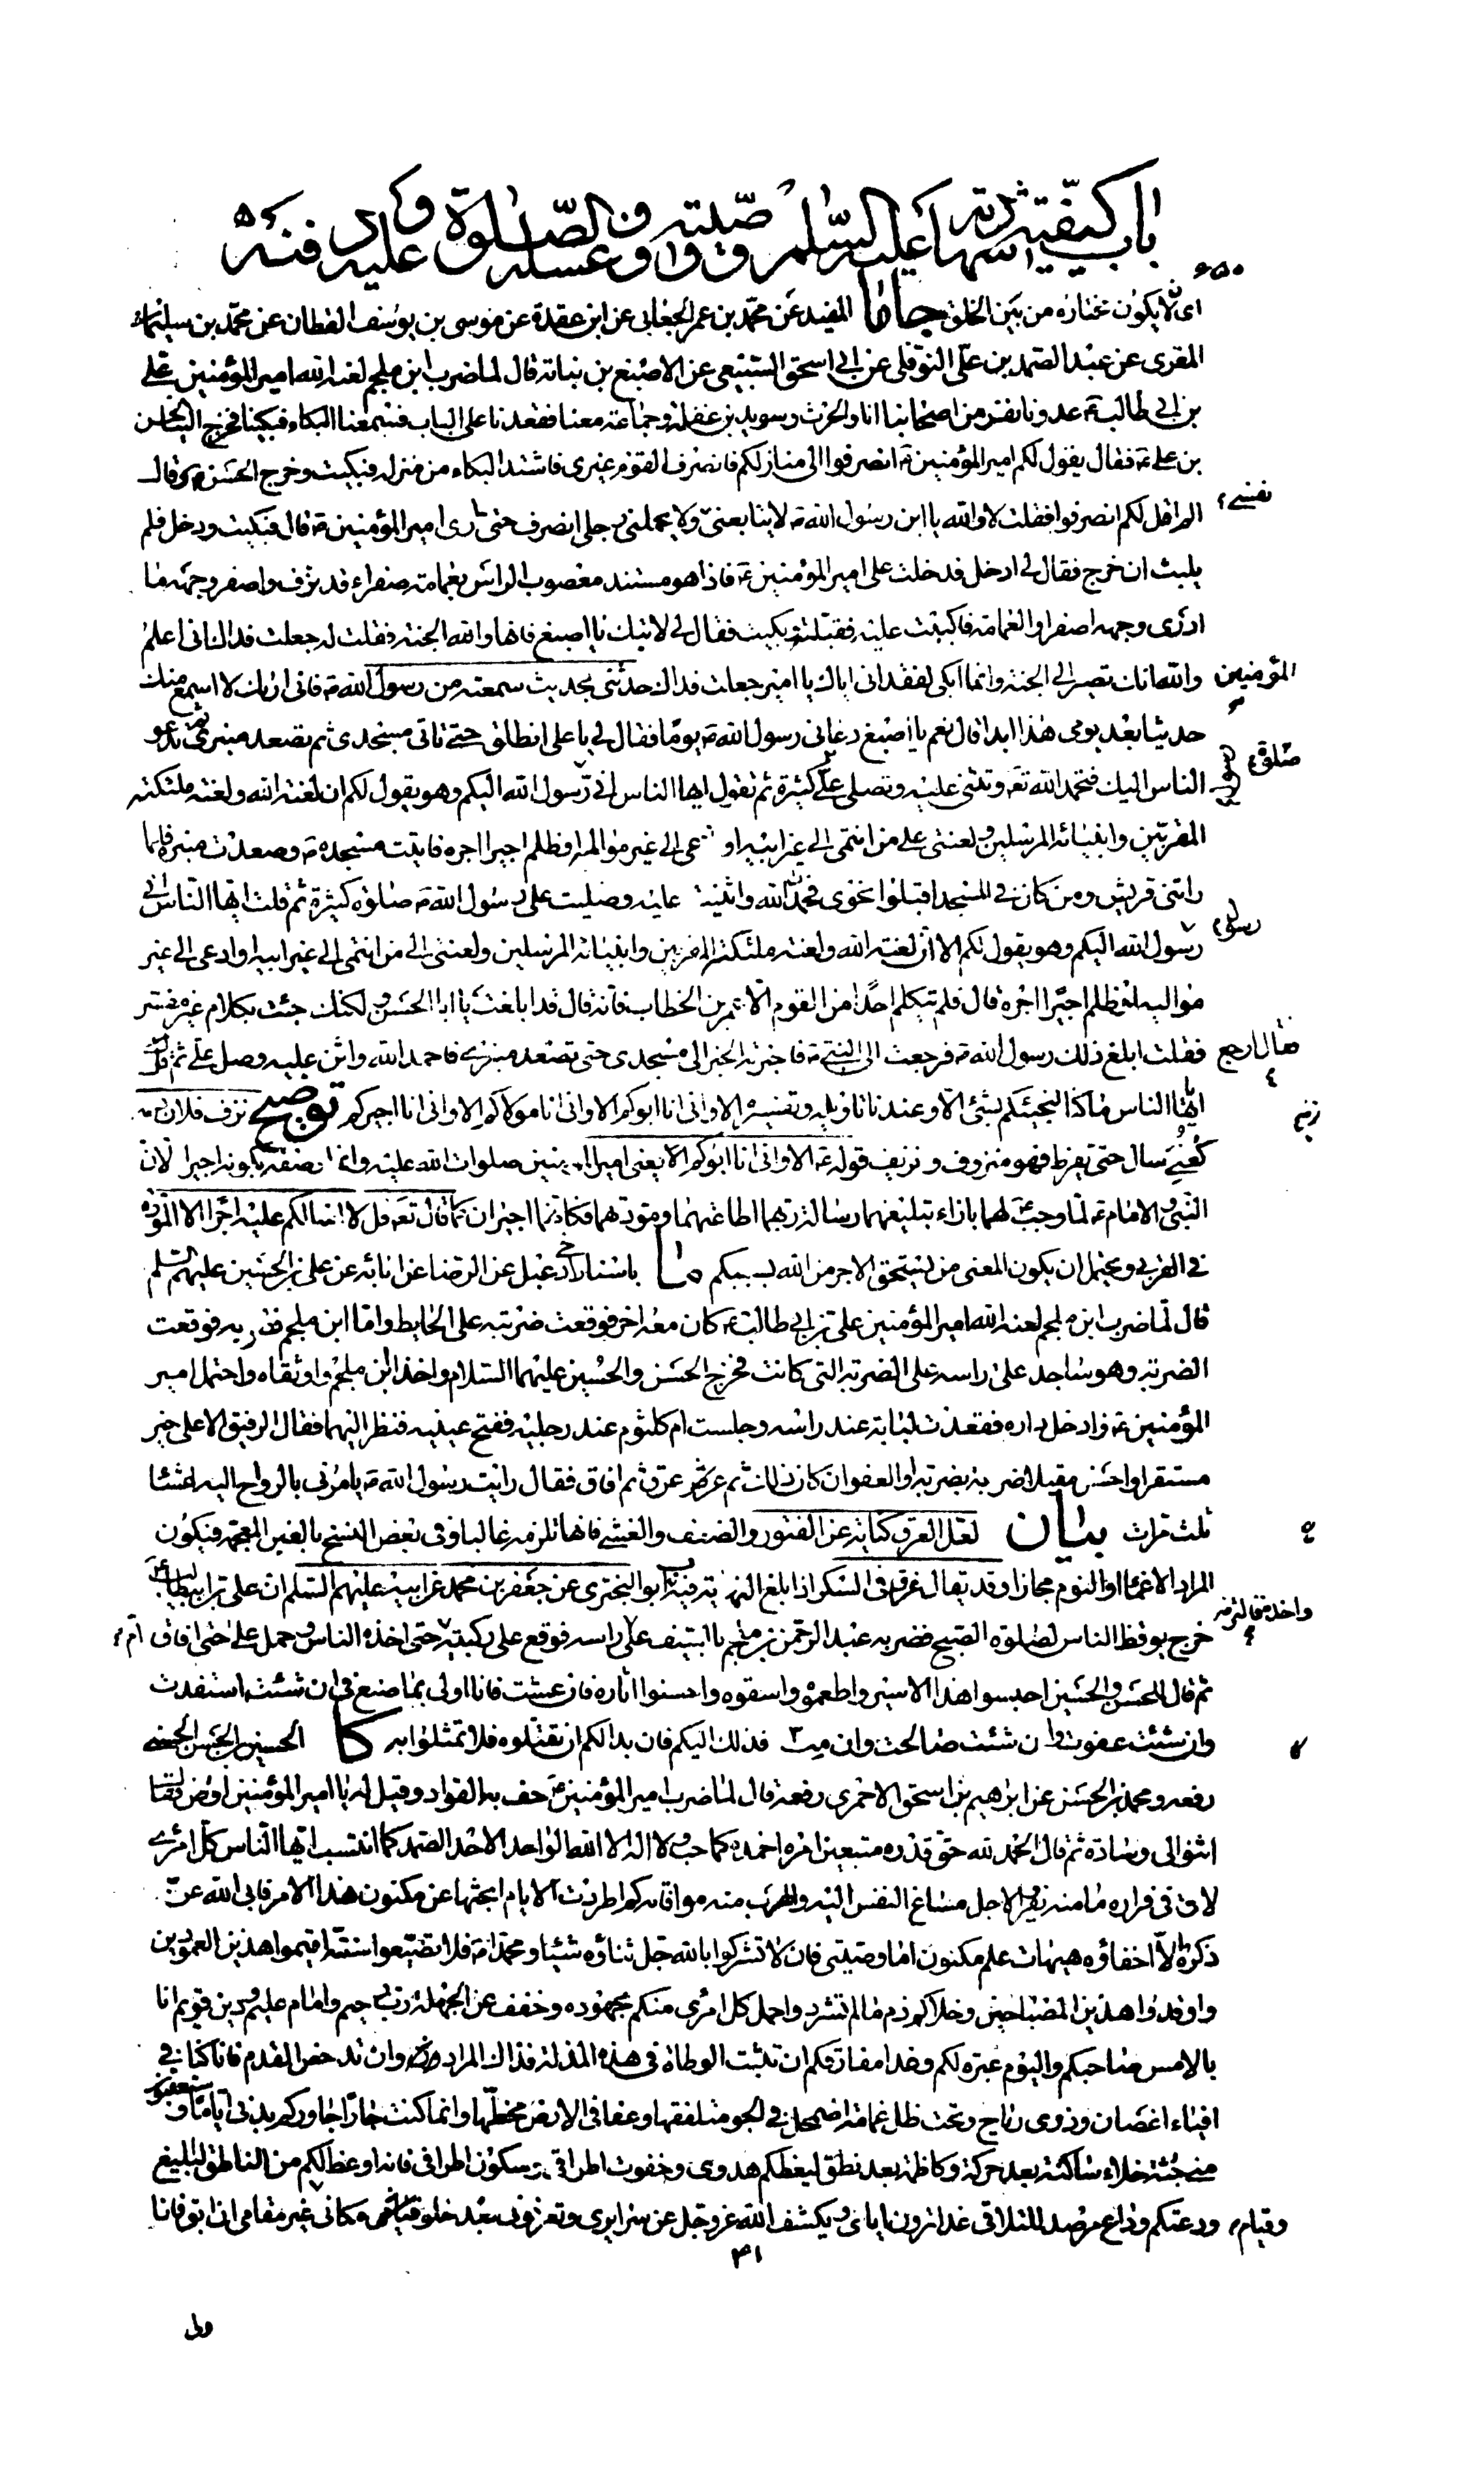 باب كيفية شهادته عليه السلام ووصيته وغسله والصلوة عليه ودفنه
اى لا يكون مختاره من بين الخلق جا ما المفيد عن محمد بن عمر الجعابى عن ابن عقدة عن موسى بن يوسف القطان عن محمد بن سليمان
المقرى عن عبد الصمد بن على النوفلى عن ابى اسحق السبيعى عن الاصبغ بن نباته قال لما ضرب ابن ملجم لعنه الله امير المؤمنين على
بن ابى طالب ع عدونا نفر من اصحابنا انا والحرث وسويد بن غفلة وجماعة معنا فقعدنا على الباب فسمعنا البكاء فبكينا فخرج الينا الحسن
بن على ع فقال يقول لكم امير المؤمنين ع انصرفوا الى منازلكم فانصرف القوم غيرى فاشتد البكاء من منزله فبكيت وخرج الحسن ع وقال
الم اقل لكم انصرفوا فقلت لا والله يا ابن رسول الله ص لا يتابعنى ولا يحملنى رجلى انصرف حتى ارى امير المؤمنين ع قال فبكيت ودخل فلم
نفسى
يلبث ان خرج فقال لى ادخل فدخلت على امير المؤمنين ع فاذا هو مستند معصوب الراس بعمامة صفراء قد نزف واصفر وجهه ما
ادرى وجهه اصفر او العمامة فاكببت عليه فقبلته وبكيت فقال لى لا تبك يا اصبغ فانها والله الجنة فقلت له جعلت فداك انى اعلم
والله انك تصير الى الجنة وانما ابكى لفقدانى اياك يا امير جعلت فداك حدثنى بحديث سمعته من رسول الله ص فانى اراك لا اسمع منك
المؤمنين
حديثا بعد يومى هذا ابدا قال نعم يا اصبغ دعانى رسول الله ص يوما فقال لى يا على انطلق حتى تاتى مسجدى ثم تصعد منبرى ثم تدعو
الناس اليك فتحمد الله تع وتثنى عليه وتصلى على كثيرة ثم تقول ايها الناس انى رسول الله اليكم وهو يقول لكم ان لعنة الله ولعنة ملئكته
صلوة
المقربين وانبيائه المرسلين ولعنتى على من انتمى الى غير ابيه او ادعى الى غير مواليه او ظلم اجيرا اجره فاتيت مسجده ص وصعدت منبره فلما
راتنى قريش ومن كان فى المسجد اقبلوا نحوى فحمدت الله واثنيت عليه وصليت على رسول الله ص صلوة كثيرة ثم قلت ايها الناس انى
رسول الله اليكم وهو يقول لكم الا ان لعنة الله ولعنة ملئكته المقربين وانبيائه المرسلين ولعنتى الى من انتمى الى غير ابيه او ادعى الى غير
رسول
مواليه او ظلم اجيرا اجره قال فلم يتكلم احد من القوم الا عمر بن الخطاب فانه قال قد ابلغت يا ابا الحسن ولكنك جئت بكلام غير مفسر
فقلت ابلغ ذلك رسول الله ص فرجعت الى النبى ص فاخبرته الخبر الى مسجدى حتى تصعد منبرى فاحمد الله واثن عليه وصل على ثم قل
فقال ارجع
ايها الناس ما كنا لنجيئكم بشئ الا وعندنا تاويله وتفسيره الا وانى انا ابوكم الا وانى انا مولاكم الا وانى انا اجيركم توضيح نزف فلان
كعنى سال حتى يفرط فهو منزوف ونزيف قوله ع الا وانى انا ابوكم الا يعنى امير المؤمنين صلوات الله عليه وانما وصفه بكونه اجيرا لان
النبى والامام ع لما وجب لهما بازاء تبليغهما رسالة ربهما اطاعتهما ومودتهما فكانهما اجيران كما قال تع قل لا اسالكم عليه اجرا الا المودة
فى القربى ويحتمل ان يكون المعنى من يستحق الاجر من الله بسببكم ما باسناد اخى دعبل عن الرضا عن ابائه عن على بن الحسين عليهم السلام
قال لما ضرب ابن ملجم لعنه الله امير المؤمنين على بن ابى طالب ع كان معه اخر فوقعت ضربته على الحايط واما ابن ملجم فضربه فوقعت
الضربة وهو ساجد على راسه على الضربة التى كانت فخرج الحسن والحسين عليهما السلام واخذا ابن ملجم واوثقاه واحتمل امير
المؤمنين ع فادخل داره فقعدت لبابة عند راسه وجلست ام كلثوم عند رجليه ففتح عينيه فنظر اليهما فقال الرفيق الاعلى خير
مستقرا واحسن مقيلا ضربة بضربة او العفو ان كان ذلك ثم عرق ثم افاق فقال رايت رسول الله ص يامرنى بالرواح اليه عشاء
ثلث مرات بيان لعل العرق كناية عن الفتور والضعف والغشى فانها تلزمه غالبا وفى بعض النسخ بالغين المعجمة فيكون
المراد الاغماء او النوم مجازا وقد يقال غرق فى السكر اذا بلغ النهاية فيه ب ابو البخترى عن جعفر بن محمد عن ابيه عليهم السلم ان على بن ابى طالب ع
خرج يوقظ الناس لصلوة الصبح فضربه عبد الرحمن بن ملجم بالسيف على راسه فوقع على ركبتيه حتى اخذه الناس وحمل على حتى افاق
ثم قال للحسن والحسين احبسوا هذا الاسير واطعموه واسقوه واحسنوا اساره فان عشت فانا اولى بما صنع فى ان شئت استقدت
وان شئت عفوت وان شئت صالحت وان مت فذلك اليكم فان بدا لكم ان تقتلوه فلا تمثلوا به كا الحسين بن الحسن الحسنى
رفعه ومحمد بن الحسن عن ابرهيم بن اسحق الاحمرى رفعه قال لما ضرب امير المؤمنين ع حف به العواد وقيل له يا امير المؤمنين اوص فقال
اثنوا لى وسادة ثم قال الحمد لله حق قدره متبعين امره احمده كما احب ولا اله الا الله الواحد الاحد الصمد كما انتسب ايها الناس كل امرئ
لاق فى فراره ما منه يفر والاجل مساغ النفس اليه والهرب منه موافاته كم اطردت الايام ابحثها عن مكنون هذا الامر فابى الله عز
ذكره الا اخفاؤه هيهات علم مكنون اما وصيتى فان لا تشركوا بالله جل ثناؤه شيئا ومحمدا ص فلا تضيعوا سنته اقيموا هذين العمودين
واوقدوا هذين المصباحين وخلاكم ذم ما لم تشردوا حمل كل امرئ منكم مجهوده وخفف عن الجهلة رب رحيم وامام عليم ودين قويم انا
بالامس صاحبكم واليوم عبرة لكم وغدا مفارقكم ان تثبت الوطاة فى هذه المزلة فذاك المراد وان تدحض القدم فانا كنا فى
افياء اغصان وذرى رياح وتحت ظل غمامة اضمحل فى الجو متلفقها وعفا فى الارض مخطها وانما كنت جارا جاوركم بدنى اياما وستعقبون
منى جثة خلاء ساكنة بعد حركة وكاظمة بعد نطق ليعظكم هدوى وخفوت اطراقى وسكون اطرافى فانه اوعظ لكم من الناطق البليغ
ودعتكم وداع مرصد للتلاقى غدا ترون ايامى ويكشف الله عز وجل عن سرايرى وتعرفونى بعد خلو مكانى غير مقامى ان ابق فانا
وقيام
ولى